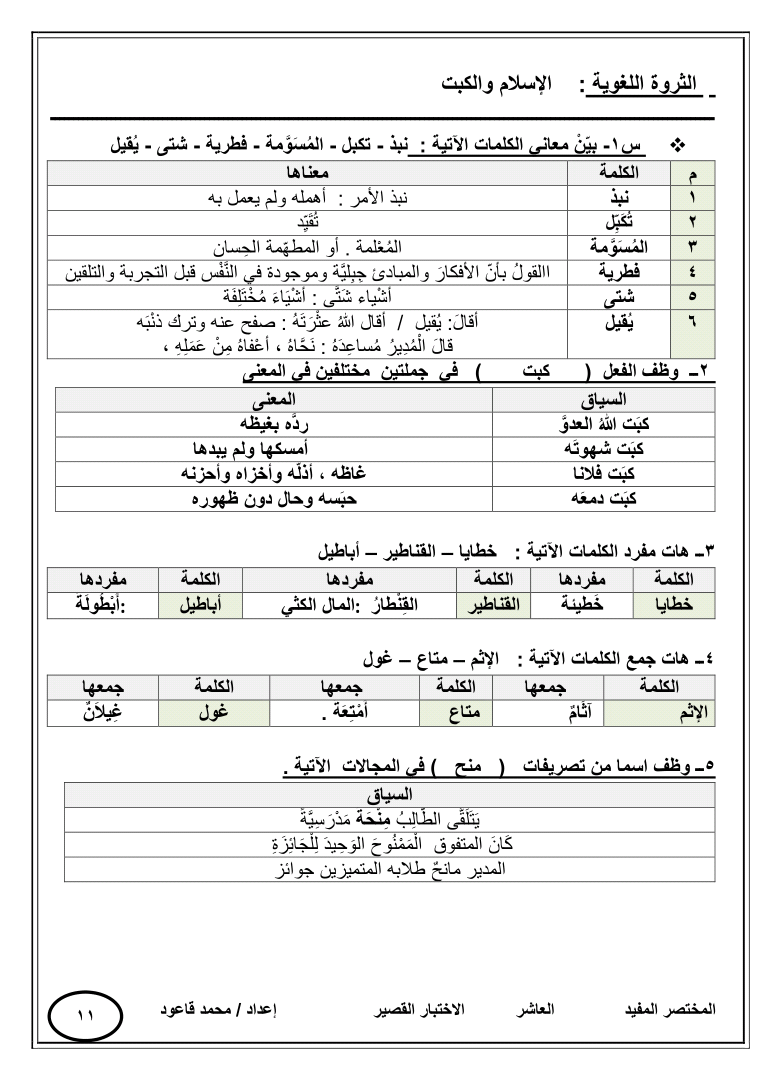 الثروة اللغوية : الإسلام والكبت
❖ س١- بيّنْ معاني الكلمات الآتية : نبذ - تكبل - المُسَوَّمة - فطرية - شتى - يُقيل
م الكلمة معناها
١ نبذ نبذ الأمر : أهمله ولم يعمل به
٢ تُكَبِّل تُقَيِّد
٣ المُسَوَّمة المُعْلمة . أو المطهّمة الحِسان
٤ فطرية االقولُ بأنّ الأفكارَ والمبادئ جِبِليَّة وموجودة في النَّفْس قبل التجربة والتلقين
٥ شتى أشْياء شَتَّى : أشْيَاءَ مُخْتَلِفَة
٦ يُقيل أقالَ: يُقيل / أقال اللهُ عثْرَتَهُ : صفح عنه وترك ذنْبَه
قالَ الْمُدِيرُ مُساعِدَهُ : نَحَّاهُ ، أعْفاهُ مِنْ عَمَلِهِ ،
٢ــ وظف الفعل ( كبت ) في جملتين مختلفين في المعنى
السياق المعنى
كبَت اللهُ العدوَّ ردَّه بغيظه
كبَت شهوتَه أمسكها ولم يبدها
كبَت فلانا غاظه ، أذلّه وأخزاه وأحزنه
كبَت دمعَه حبَسه وحال دون ظهوره
٣ــ هات مفرد الكلمات الآتية : خطايا – القناطير – أباطيل
الكلمة مفردها الكلمة مفردها الكلمة مفردها
خطايا خَطيئة القناطير القِنْطارُ :المال الكثي أباطيل :أُبْطُولَة
٤ــ هات جمع الكلمات الآتية : الإثم – متاع – غول
الكلمة جمعها الكلمة جمعها الكلمة جمعها
الإثم آثَامٌ متاع أمْتِعَة . غول غِيلاَنٌ
٥ــ وظف اسما من تصريفات ( منح ) في المجالات الآتية .
السياق
يَتَلَقَّى الطَّالِبُ مِنْحَة مَدْرَسِيَّةً
كَانَ المتفوق الْمَمْنُوحَ الوَحِيدَ لِلْجَائِزَةِ
المدير مانحٌ طلابه المتميزين جوائز
المختصر المفيد العاشر الاختبار القصير إعداد / محمد قاعود ١١